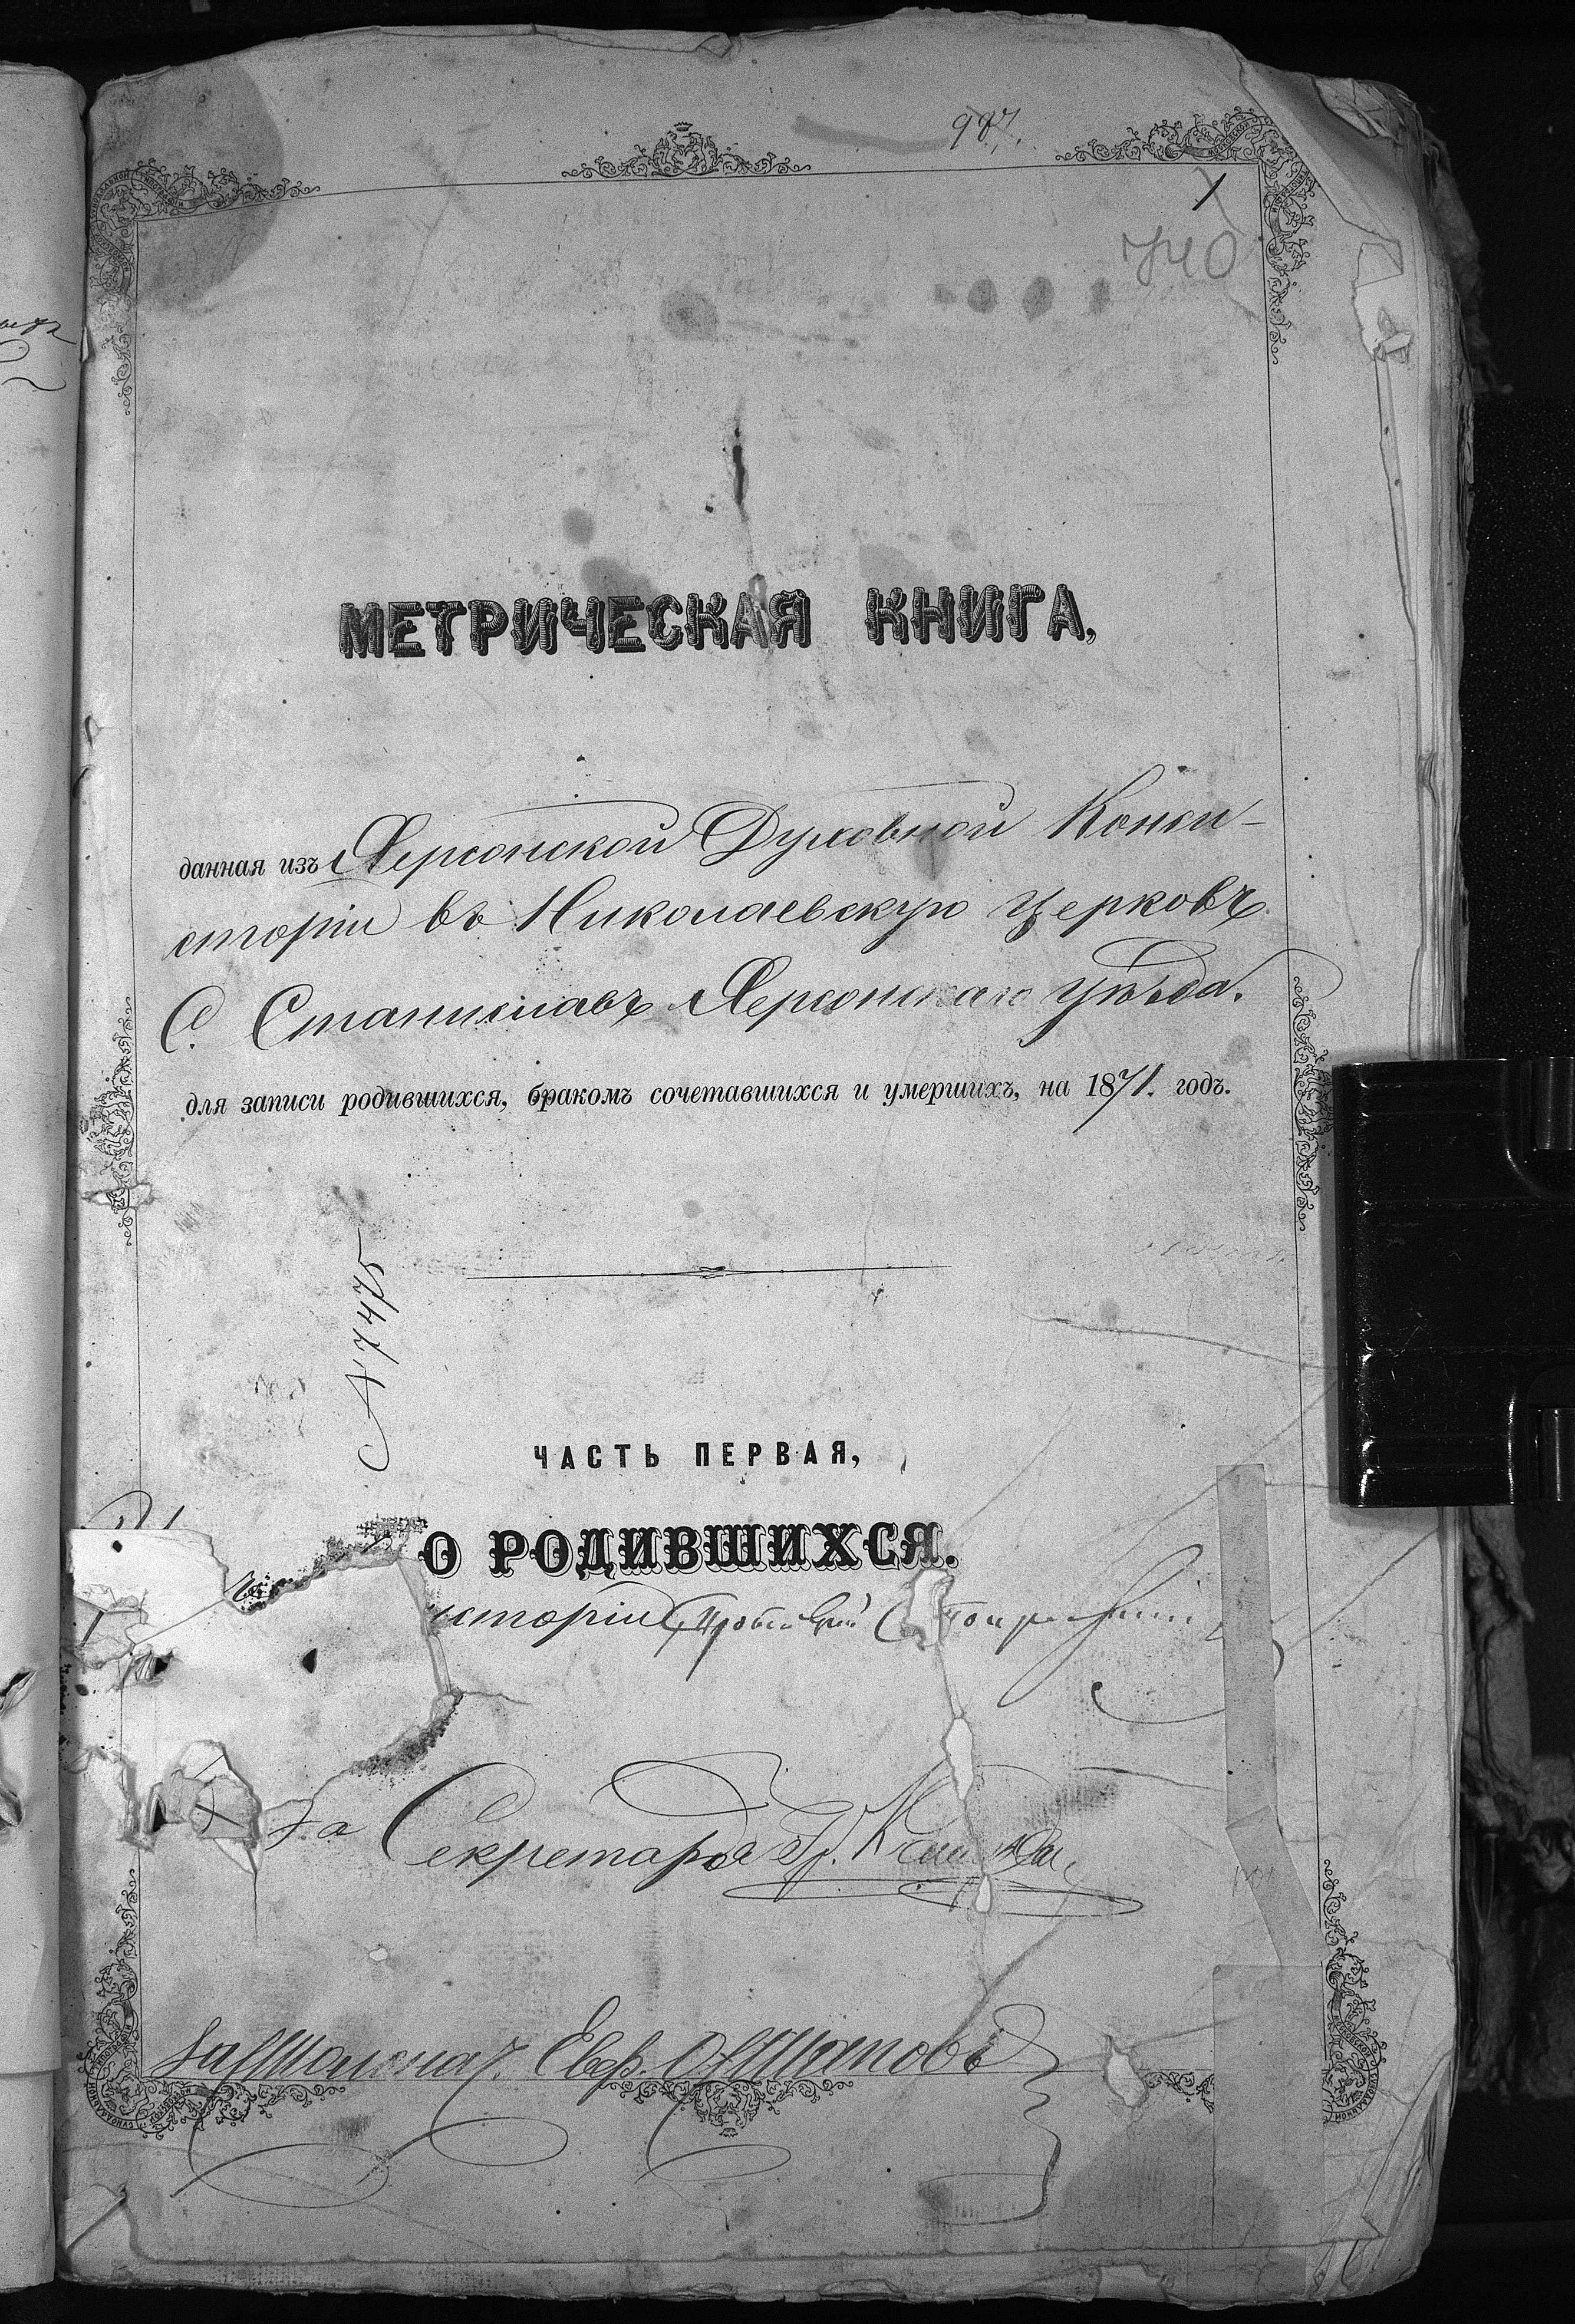 987.
1
740
МЕТРИЧЕСКАЯ КНИГА,
данная изъ Херсонской Духовной Конси-
сторіи въ Николаевскую церковь
С. Станиславъ Херсонскаго уѣзда.
для записи родившихся, бракомъ сочетавшихся и умершихъ, на 1871. годъ.
№ 7475
ЧАСТЬ ПЕРВАЯ,
О РОДИВШИХСЯ.
исторіи Протоіерей
За Секретаря Гр.
За Столонач. Евф.